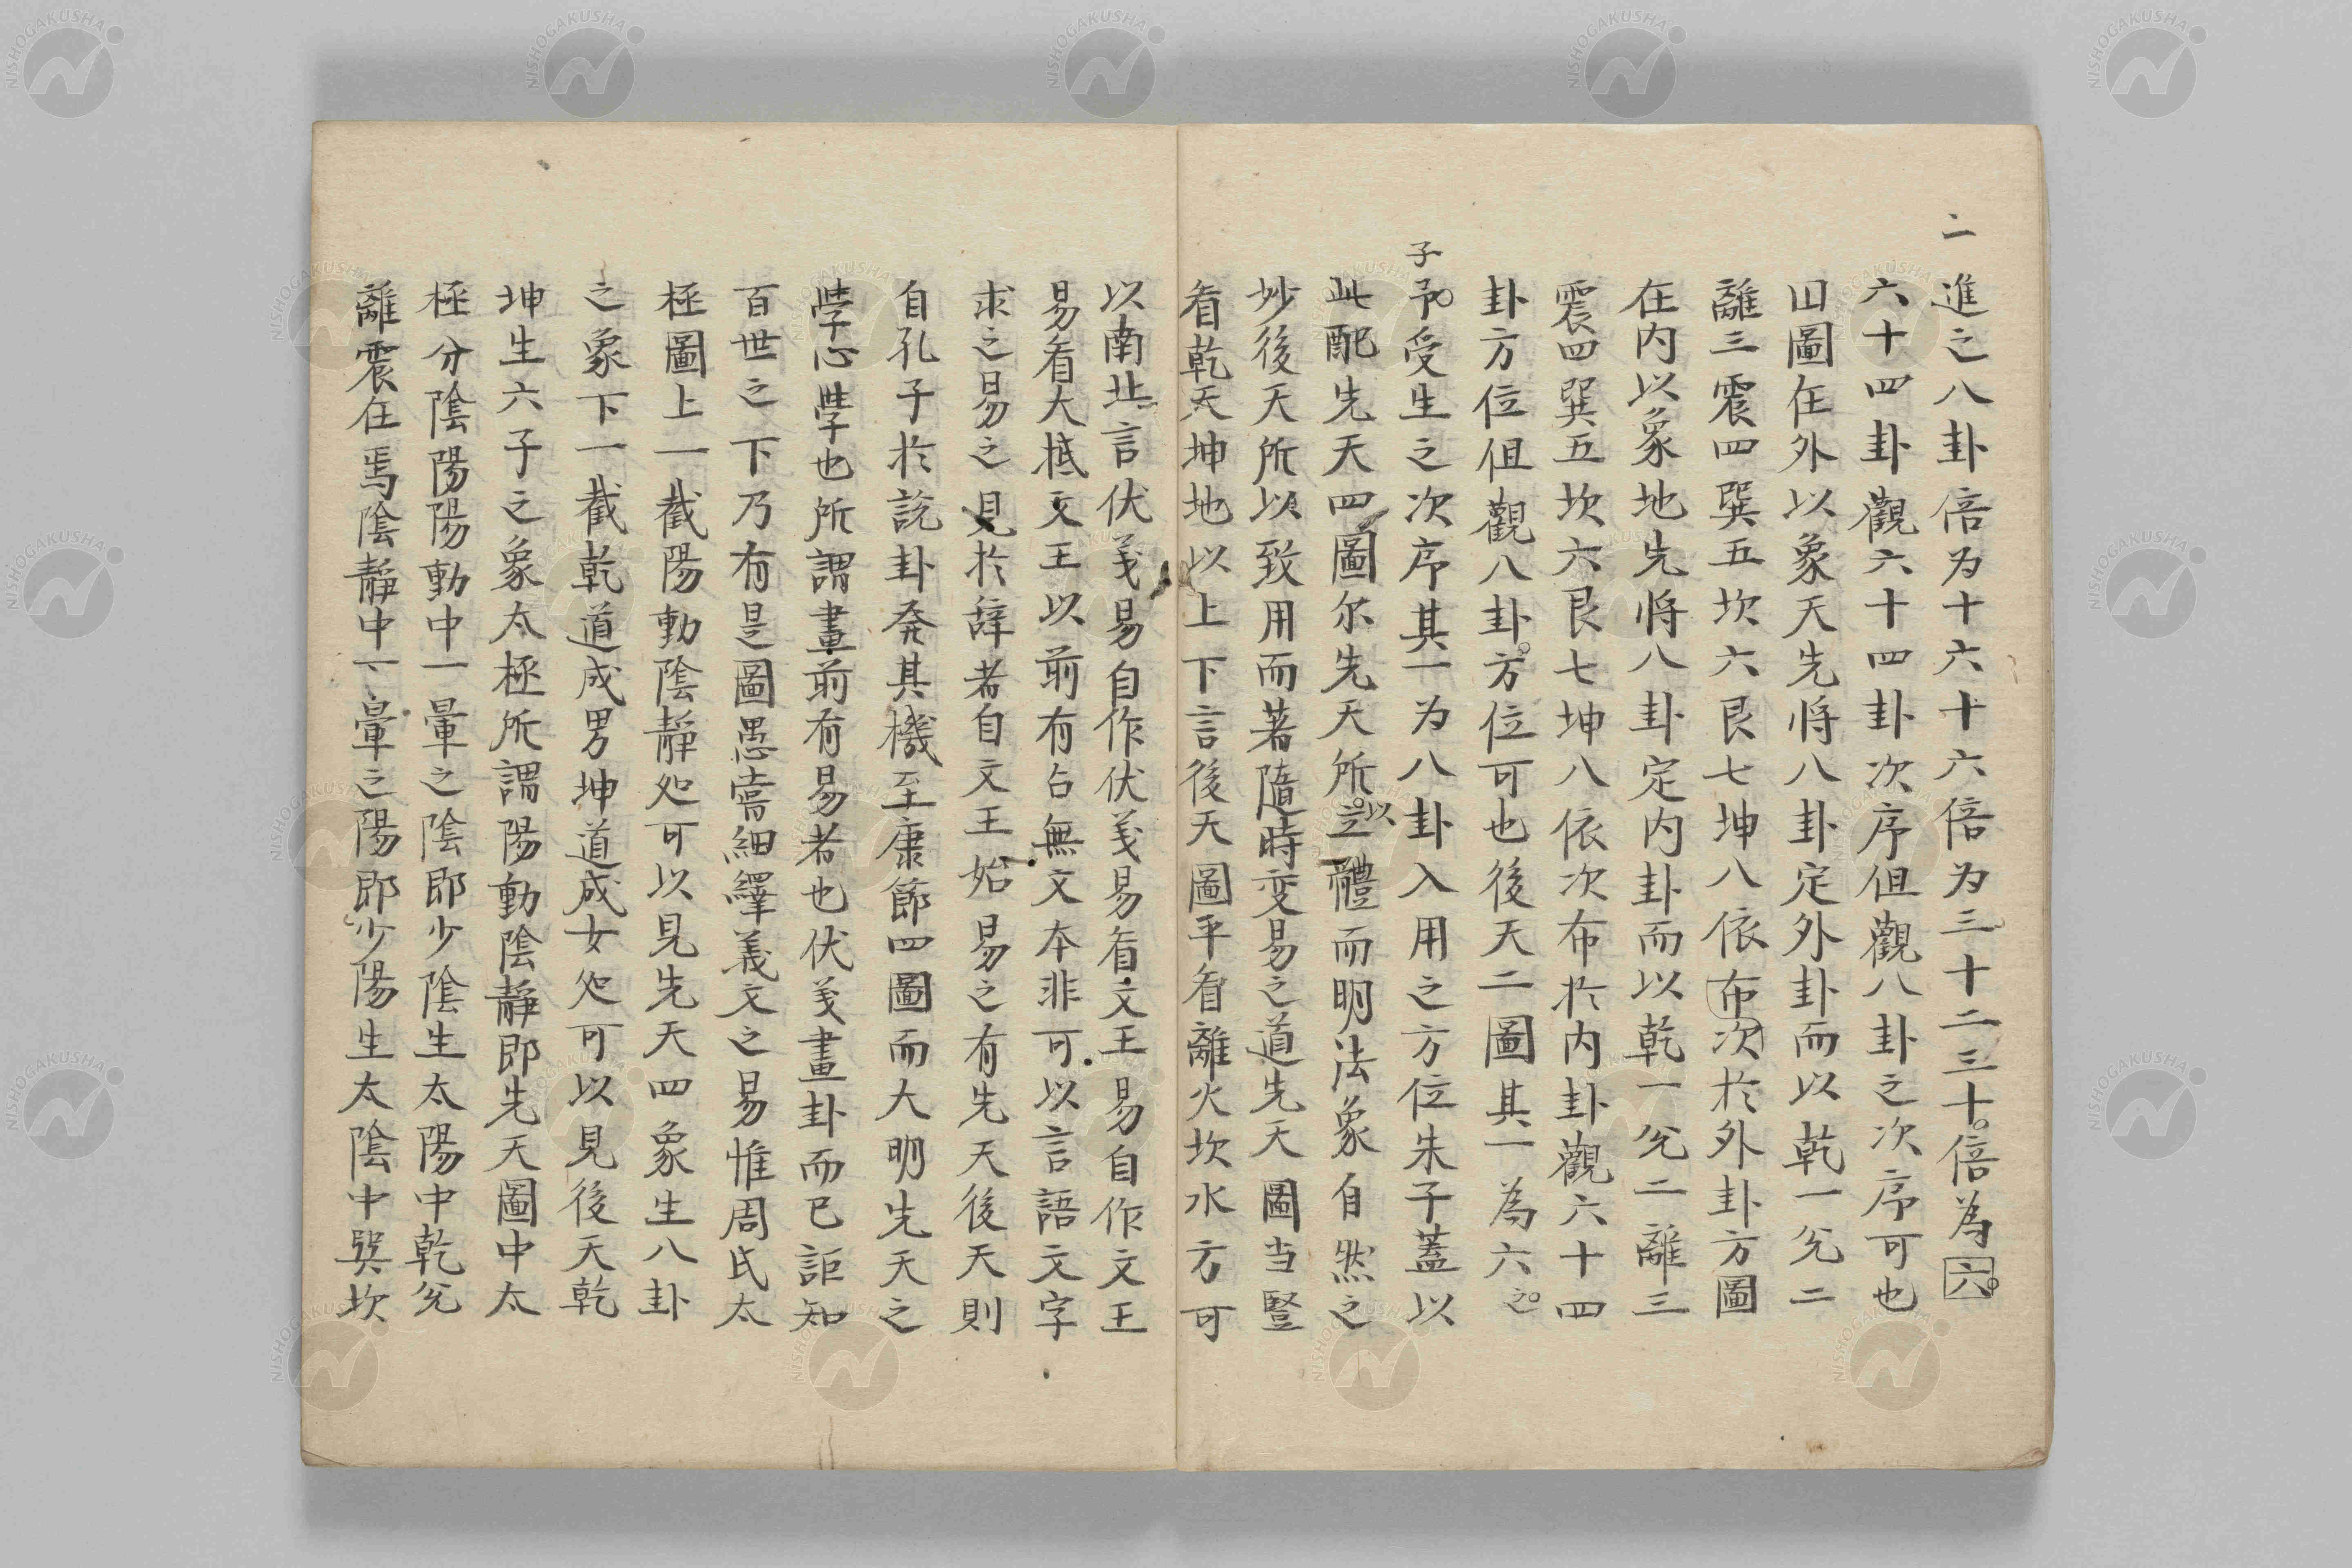 二
進之八卦倍为十六十六倍为三十二三十倍為六
六十四卦觀六十四卦次序但觀八卦之次序可也
囗圖在外以象天先将八卦定外卦而以乾一兊二
離三震四巽五坎六艮七坤八依布次於外卦方圖
在内以象地先将八卦定内卦而以乾一兊二離三
震四巽五坎六艮七坤八依次布於内卦觀六十四
卦方位但觀八卦方位可也後天二圖其一為六之
子
予受生之次序其一为八卦入用之方位朱子蓋以
此配先天四圖尔先天所以立體而明法象自然之
妙後天所以致用而著隨時变易之道先天圖当豎
看乾天坤地以上下言後天圖平看離火坎水方可
以南北言伏羲易自作伏羲易看文王易自作文王
易看大抵文王以前有占無文本非可以言語文字
求之易之見於辞者自文王始易之有先天後天則
自孔子於説卦発其機至康節四圖而大明先天之
學心學也所謂畫前有易者也伏羲畫卦而已詎知
百世之下乃有是圖愚嘗細繹羲文之易惟周氏太
極圖上一截陽動陰靜处可以見先天四象生八卦
之象下一截乾道成男坤道成女处可以見後天乾
坤生六子之象太極所謂陽動陰靜即先天圖中太
極分陰陽陽動中一暈之陰即少陰生太陽中乾兊
離震在焉陰靜中一暈之陽即少陽生太陰中巽坎
NISHOGAKUSHA